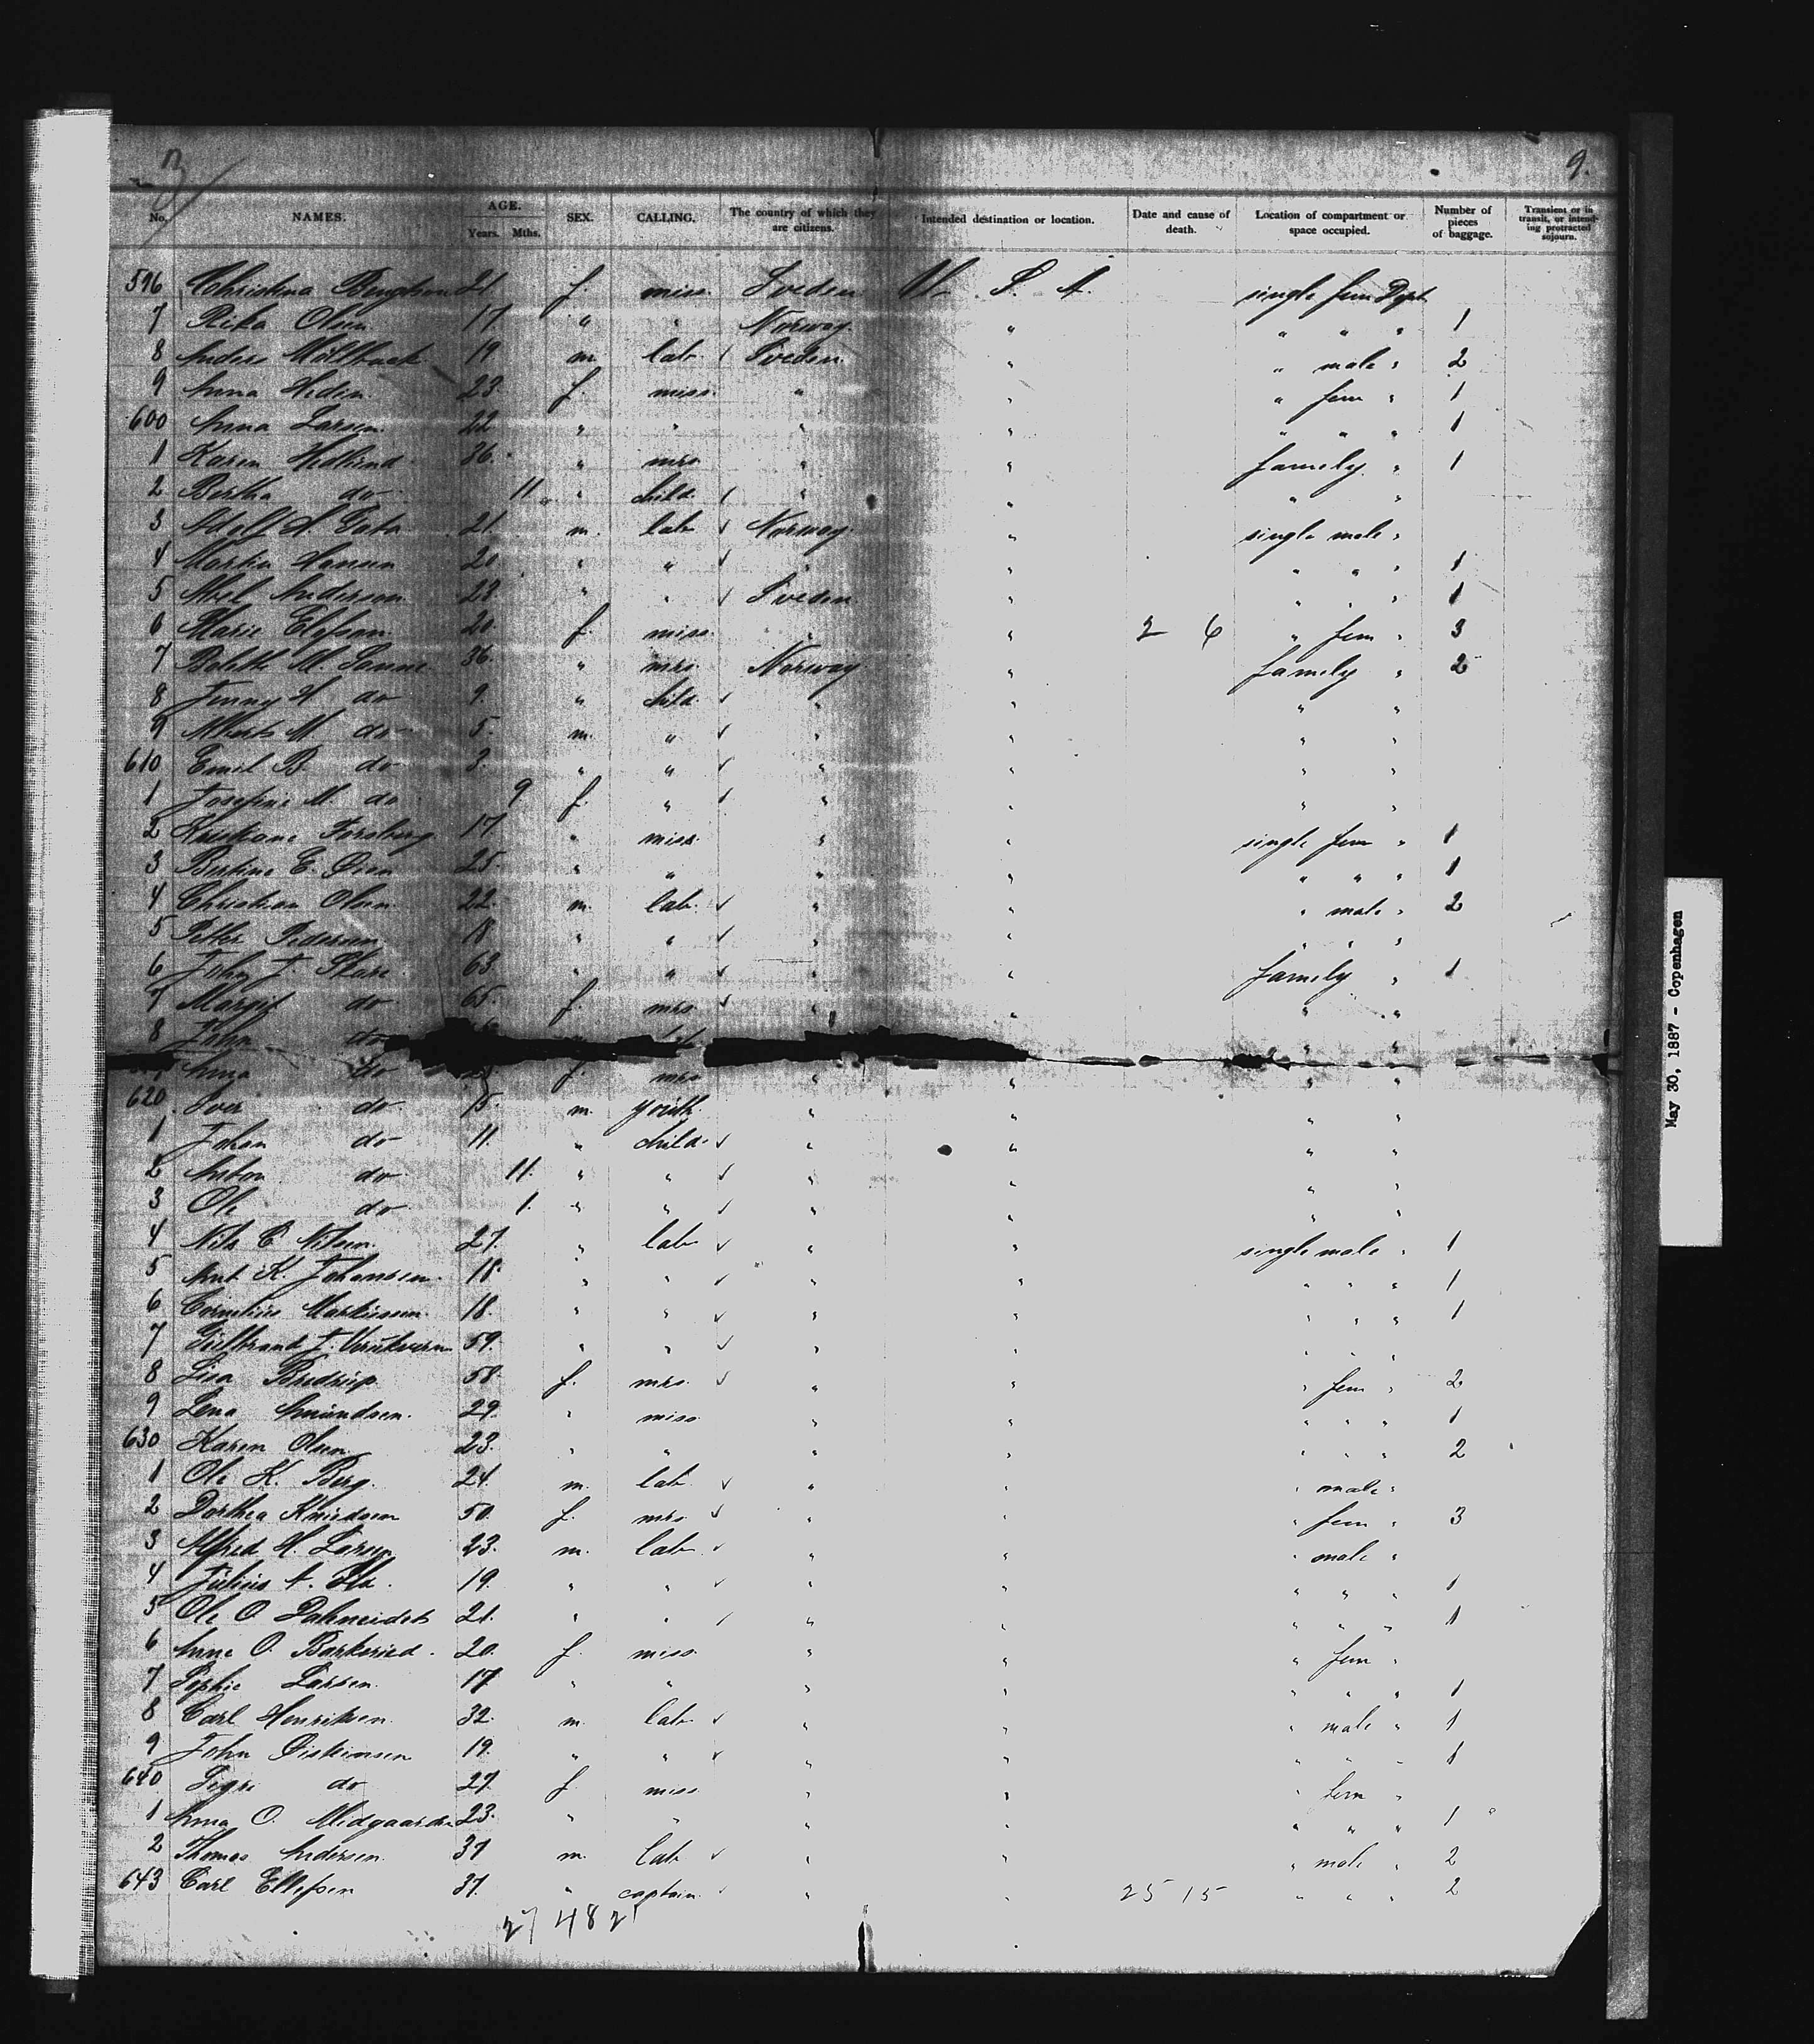 9.
No. NAMES. AGE. Years. Mths. SEX. CALLING. The country of which they are citizens. Intended destination or location. Date and cause of death. Location of compartment or space occupied. Number of pieces of baggage. Transient or in transit, or intending protracted sojourn.
596 Christina 21 f miss Sweden U. S. A. single fem Dept
7 Rika Olsen 17 " " Norway " " " " 1
8 Anders 19 m. lab. Sweden " " male " 2
9 Anna Hedin 23 f. miss. " " " fem " 1
600 Anna Larsen 22 " " " " " " " 1
1 Karen Hedlund 36 " mrs " " family " 1
2 Bertha do 11 " child " " " "
3 Adolf 21 m. lab Norway " single male "
4 Martin Hansen 20 " " " " " " 1
5 Axel Anderson 23 " " Sweden " " " " 1
6 Marie Elefson 20 f. miss. " " 2 6 " fem " 3
7 36. " mrs Norway " family " 2
8 Jenny H do 9. " child " " " "
9 Albert M do 5. m. " " " " "
610 Emil B. do 3. " " " " " "
1 Josefine M. do 9 f. " " " " "
2 Forsberg 17. " miss. " " single fem " 1
3 25. " " " " " " " 1
4 Christian Olsen 22. m. lab. " " " male " 2
5 Petter Pedersen 18 " " " " " " "
6 John J. 63 " " " " family " 1
7 Margit do 65. f. mrs " " " "
8 John do " "
Anna do f. mrs " " " "
620 Iver do 15. m. youth. " " " "
1 Johan do 11. " child " " " "
2 Anton do 11. " " " " " "
3 Ole do 1. " " " " " "
4 Nils C. Nilsen. 27. " lab " " single male " 1
5 K. Johansen. 18. " " " " " " " 1
6 Cornelius Markussen. 18. " " " " " " " 1
7 59. " " " " " " "
8 Lisa 58 f. mrs. " " " fem " 2
9 Lena Amundsen. 29. " miss " " " " " 1
630 Karen Olsen 23. " " " " " " " 2
1 Ole K. Berg. 24. m. lab " " " male "
2 Dorthea Knudsen 50. f. mrs " " " fem " 3
3 Alfred H. Larsen 23. m. lab " " " male "
4 Julius A. 19. " " " " " " " 1
5 Ole O. 21. " " " " " " " 1
6 Anne O. 20. f. miss. " " " fem "
7 Sophie Larsen. 17 " " " " " " " 1
8 Carl Henriksen. 32. m. lab " " " male " 1
9 John 19. " " " " " " " 1
640 do 27. f miss " " " fem "
1 Anna O. 23. " " " " " " " 1
2 Thomas Andersen. 37 m. lab " " " male " 2
643 Carl Ellefsen 37. " captain. " " 25 15 " " " 2
27 48 21
May 30, 1887 - Copenhagen